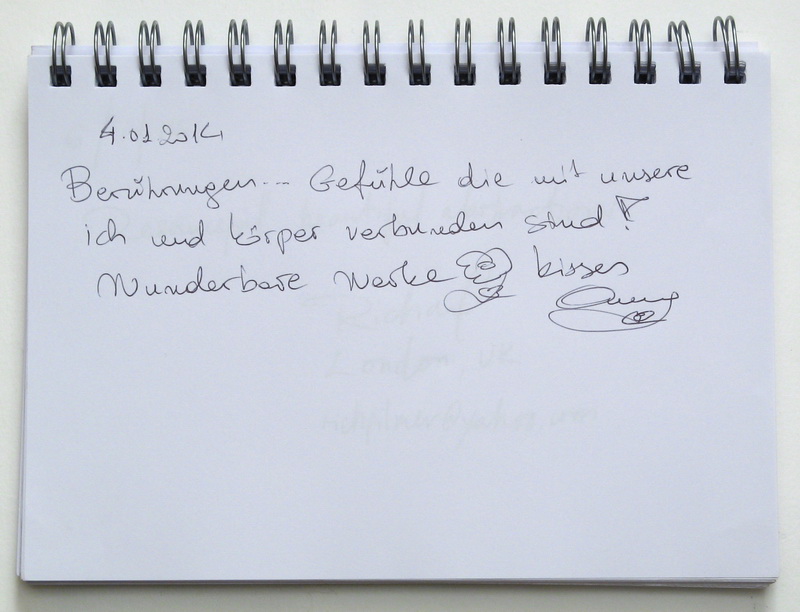 4.01.2014
Berührungen... Gefühle die mit unsere
ich und körper verbunden sind!
Wunderbare Werke kisses
London, UK